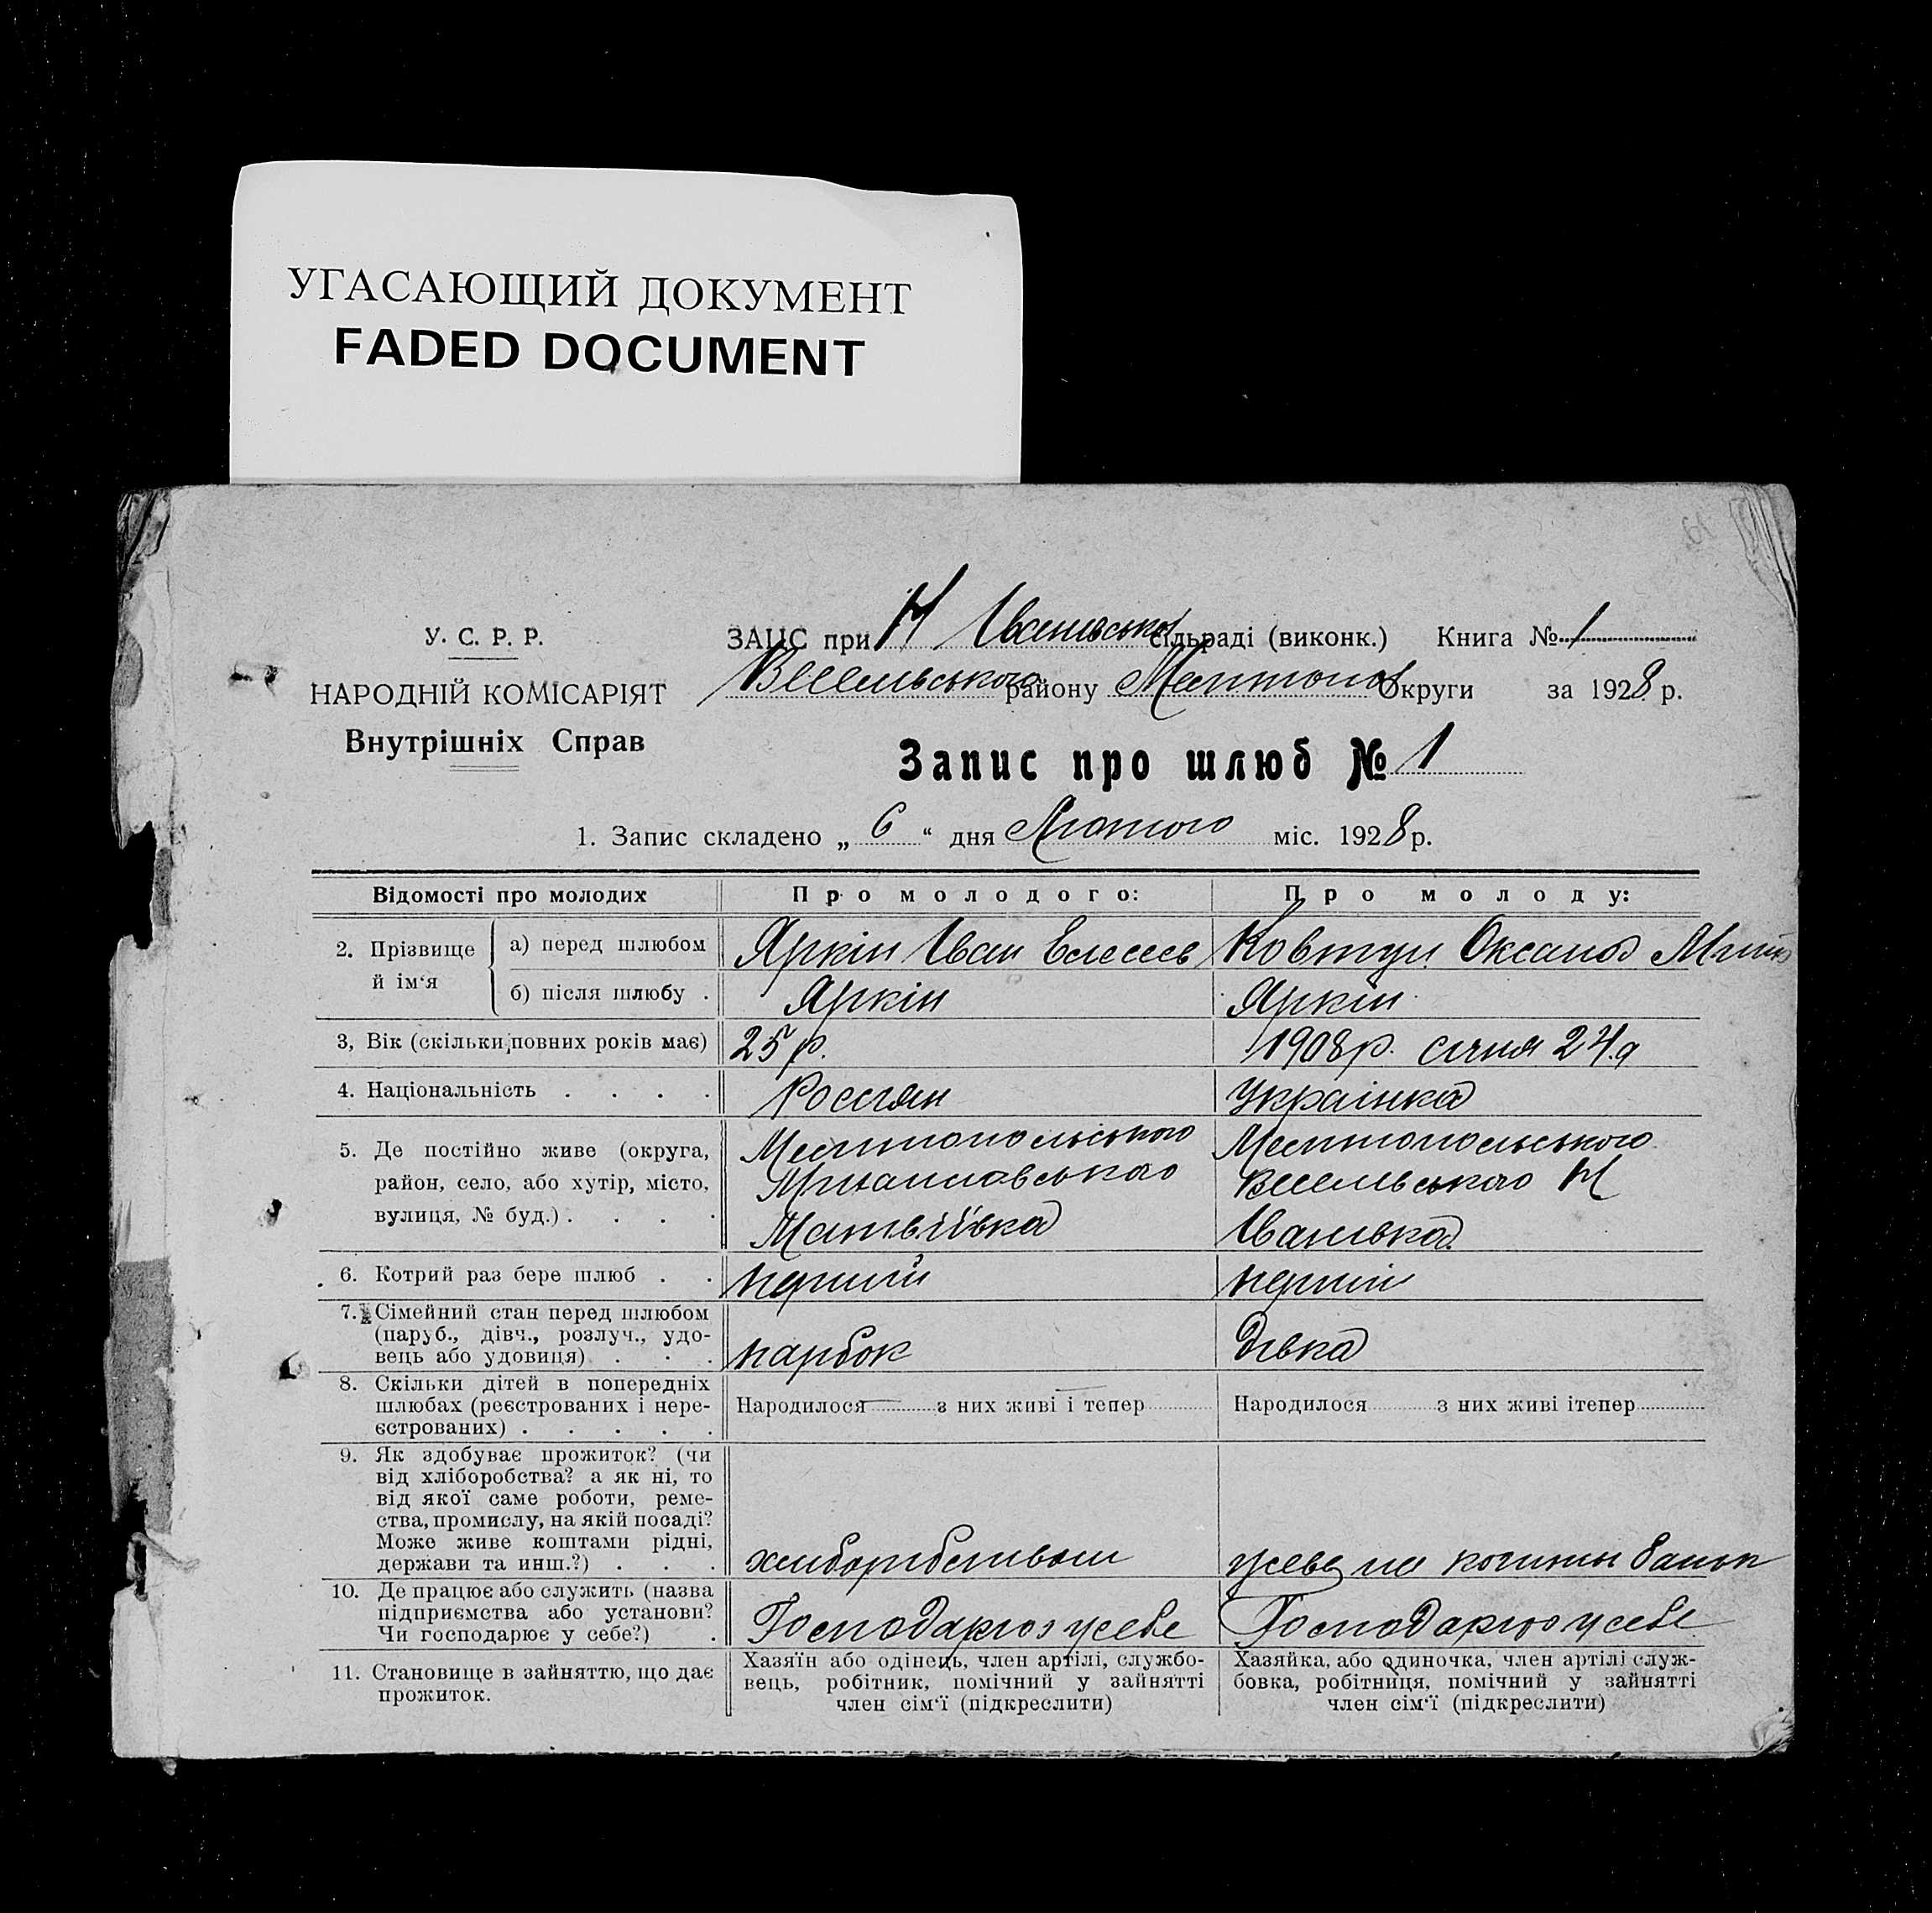 УГАСАЮЩИЙ ДОКУМЕНТ
FADED DOCUMENT
У. С. Р. Р.
НАРОДНІЙ КОМІСАРІЯТ
Внутрішніх Справ
ЗАЦС при Н Іванівській сільраді (виконк.) Книга № 1
Веселівського району Мелитопол Округи за 1928 р.
Запис про шлюб № 1
1. Запис складено „ 6 “ дня Лютого міс. 1928 р.
Відомості про молодих
Про молодого:
Про молоду:
2. Прізвище й ім‘я
а) перед шлюбом
Яркін Іван Елесеев
Ковтун Оксана
б) після шлюбу .
Яркін
Яркін
3, Вік (скільки повних років має)
25 р.
1908 р. січня 24 д
4. Національність . . . .
Россіян
Українка
5. Де постійно живе (округа,
район, село, або хутір, місто,
вулиця, № буд.) . . . .
Мелитопольського
Матвіівка
Мелитопольського
Веселівського Н
Іванівка
6. Котрий раз бере шлюб . .
перший
перший
7. Сімейний стан перед шлюбом
(паруб., дівч., розлуч., удо-
вець або удовиця) . . .
парбок
дівка
8. Скільки дітей в попередніх
шлюбах (реєстрованих і нере-
єстрованих) . . . . .
Народилося з них живі і тепер
Народилося з них живі ітепер
9. Як здобуває прожиток? (чи
від хліборобства? а як ні, то
від якої саме роботи, реме-
ства, промислу, на якій посаді?
Може живе коштами рідні,
держави та инш.?) . . .
хліборбством
живе на кошти батьк
10. Де працює або служить (назва
підприємства або установи?
Чи господарює у себе?) .
Господарює у себе
Господарює у себе
11. Становище в зайняттю, що дає
прожиток.
Хазяїн або одінець, член артілі, службо-
вець, робітник, помічний у зайнятті
член сім‘ї (підкреслити)
Хазяйка, або одиночка, член артілі служ-
бовка, робітниця, помічний у зайнятті
член сім‘ї (підкреслити)